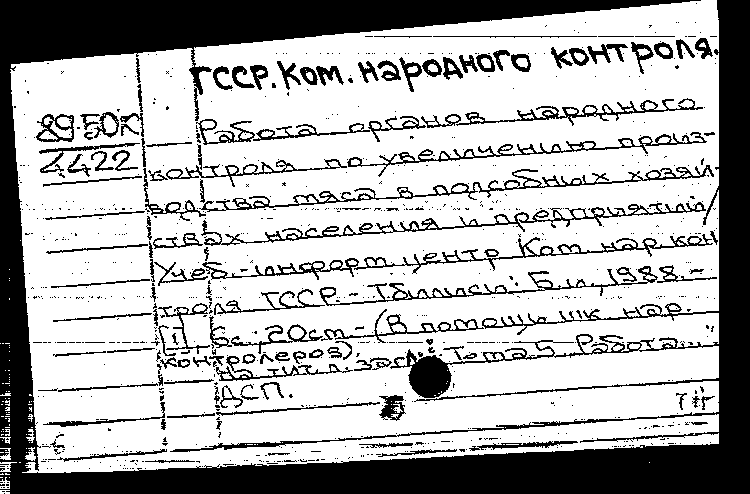 ГССР. Ком. народного контроля.
89-50К
4422
Работа органов народного
контроля по увеличению произ-
водства мяса в подсобных хозяй-
ствах населения и предприятий /
Учеб.-информ. центр Ком. нар. кон
троля ГССР. - Тбилиси: Б.и., 1988. -
[1], 6с.; 20см - (В помощь шк. нар.
контролеров).
На тит. л. загл.: Тема 5 „Работа..."
ДСП.
6